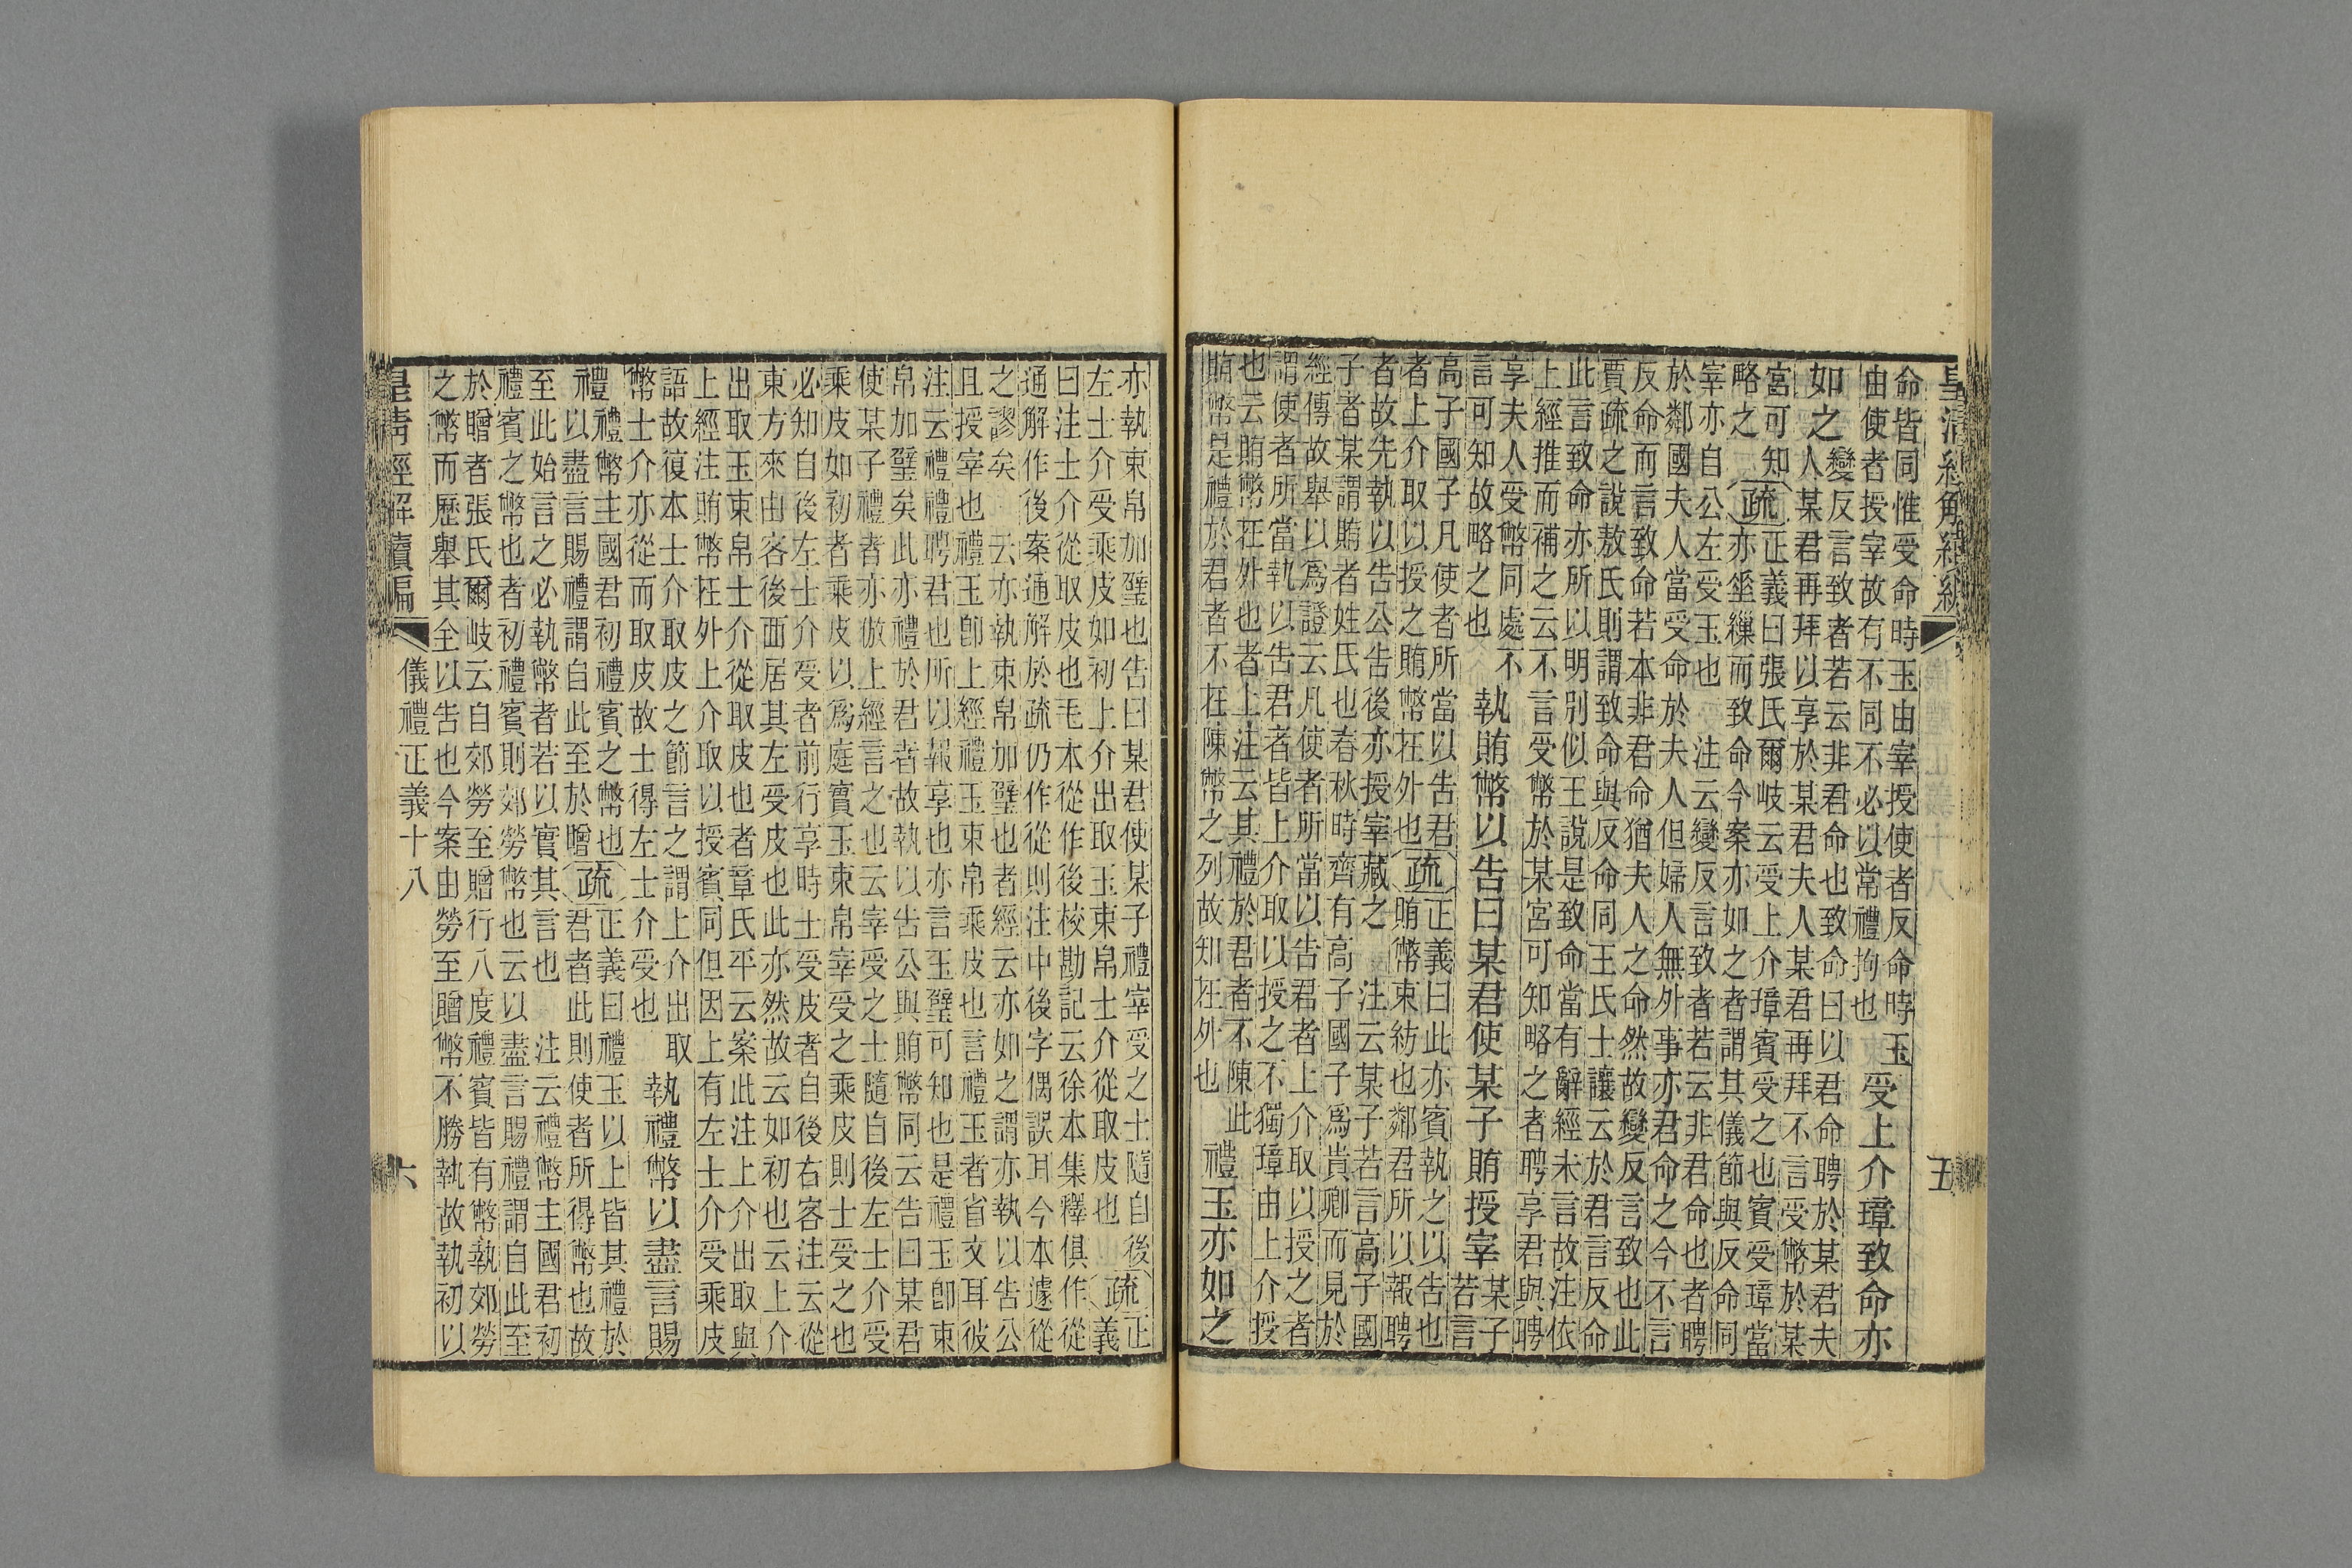 皇清經解續編
五
命皆同惟受命時玉由宰授使者反命時玉
由使者授宰故有不同不必以常禮拘也
受上介璋致命亦
如之
變反言致者若云非君命也致命曰以君命聘於某君夫
人某君再拜以享於某君夫人某君再拜不言受幣於某
宮可知
略之
疏
正義曰張氏爾岐云受上介璋賓受之也賓受璋當
亦垂繅而致命今案亦如之者謂其儀節與反命同
宰亦自公左受玉也　注云變反言致者若云非君命也者聘
於鄰國夫人當受命於夫人但婦人無外事亦君命之今不言
反命而言致命若本非君命猶夫人之命然故變反言致也此
賈疏之說敖氏則謂致命與反命同王氏士讓云於君言反命
此言致命亦所以明別似王說是致命當有辭經未言故注依
上經推而補之云不言受幣於某宮可知略之者聘享君與聘
享夫人受幣同處不
言可知故略之也
執賄幣以告曰某君使某子賄授宰
某子
若言
高子國子凡使者所當以告君
者上介取以授之賄幣在外也
疏
正義曰此亦賓執之以告也
賄幣束紡也鄰君所以報聘
者故先執以告公告後亦授宰藏之　注云某子若言高子國
子者某謂賄者姓氏也春秋時齊有高子國子爲貴卿而見於
經傳故舉以爲證云凡使者所當以告君者上介取以授之者
謂使者所當執以告君者皆上介取以授之不獨璋由上介授
也云賄幣在外也者上注云其禮於君者不陳此
賄幣是禮於君者不在陳幣之列故知在外也
禮玉亦如之
亦執束帛加璧也告曰某君使某子禮宰受之士隨自後
左士介受乘皮如初上介出取玉束帛士介從取皮也
疏
正
義
曰注士介從取皮也毛本從作後校勘記云徐本集釋俱作從
通解作後案通解於疏仍作從則注中後字偶誤耳今本遽從
之謬矣　云亦執束帛加璧也者經云亦如之謂亦執以告公
且授宰也禮玉卽上經禮玉束帛乘皮也言禮玉者省文耳彼
注云禮禮聘君也所以報享也亦言玉璧可知也是禮玉卽束
帛加璧矣此亦禮於君者故執以告公與賄幣同云告曰某君
使某子禮者亦倣上經言之也云宰受之士隨自後左士介受
乘皮如初者乘皮以爲庭實玉束帛宰受之乘皮則士受之也
必知自後左士介受者前行享時士受皮者自後右客注云從
東方來由客後西居其左受皮也此亦然故云如初也云上介
出取玉束帛士介從取皮也者章氏平云案此注上介出取與
上經注賄幣在外上介取以授賓同但因上有左士介受乘皮
語故復本士介取皮之節言之謂上介出取
幣士介亦從而取皮故士得左士介受也
執禮幣以盡言賜
禮
禮幣主國君初禮賓之幣也
以盡言賜禮謂自此至於贈
疏
正義曰禮玉以上皆其禮於
君者此則使者所得幣也故
至此始言之必執幣者若以實其言也　注云禮幣主國君初
禮賓之幣也者初禮賓則郊勞幣也云以盡言賜禮謂自此至
於贈者張氏爾岐云自郊勞至贈行八度禮賓皆有幣執郊勞
之幣而歷舉其全以告也今案由勞至贈幣不勝執故執初以
皇清經解續編
儀禮正義十八
六